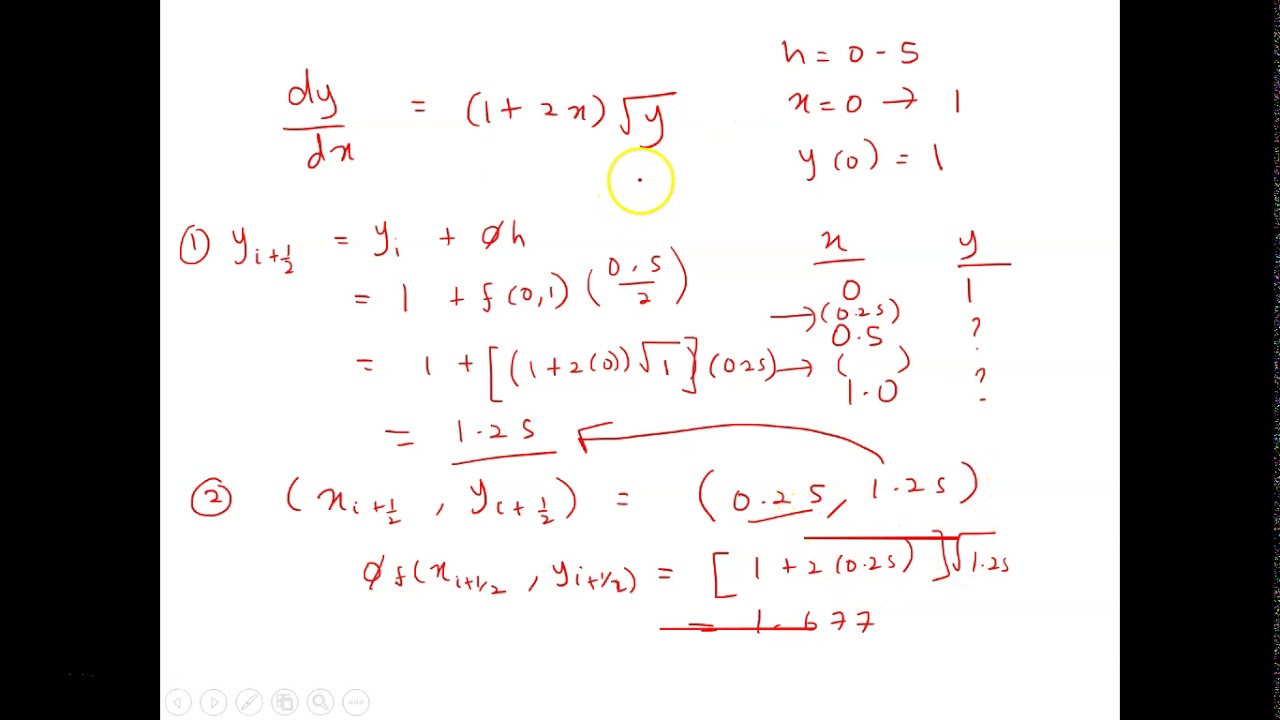 dy/dx = (1 + 2x)√y
h = 0-5
x = 0 → 1
y(0) = 1
① y_{i+1/2} = y_i + φh
= 1 + f(0,1)(0.5/2)
= 1 + [(1+2(0))√1](0.25)
= 1.25
x y
0 1
→ (0.25)
0.5 ?
→ ( )
1.0 ?
② (x_{i+1/2}, y_{i+1/2}) = (0.25, 1.25)
φ f(x_{i+1/2}, y_{i+1/2}) = [1 + 2(0.25)]√1.25
= 1.677